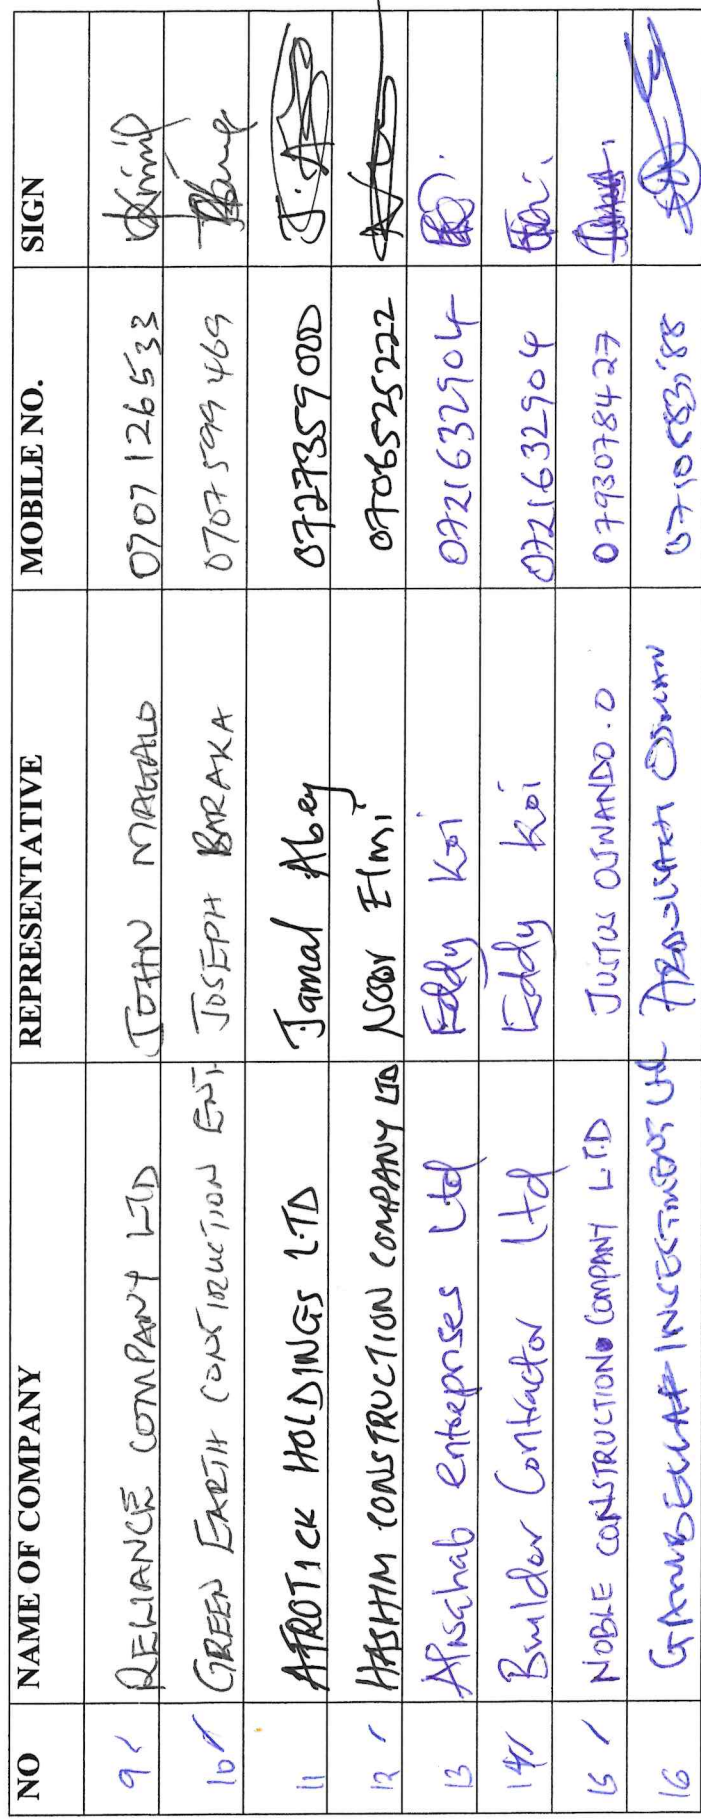 NO NAME OF COMPANY REPRESENTATIVE MOBILE NO. SIGN
9 RELIANCE COMPANY LTD JOHN MAGALO 0707126533
10 GREEN EARTH CONSTRUCTION ENT. JOSEPH BARAKA 0707599469
11 AFROTICK HOLDINGS LTD Jamal Abey 0727359000
12 HASHIM CONSTRUCTION COMPANY LTD Noor Elmi 0706525222
13 enterprises Ltd Eddy Koi 0721632904
14 Builder Contractor Ltd Eddy Koi 0721632904
15 NOBLE CONSTRUCTION COMPANY LTD JUSTUS OJWANDO.O 0793078427
16 INVESTMENTS Ltd OSMAN